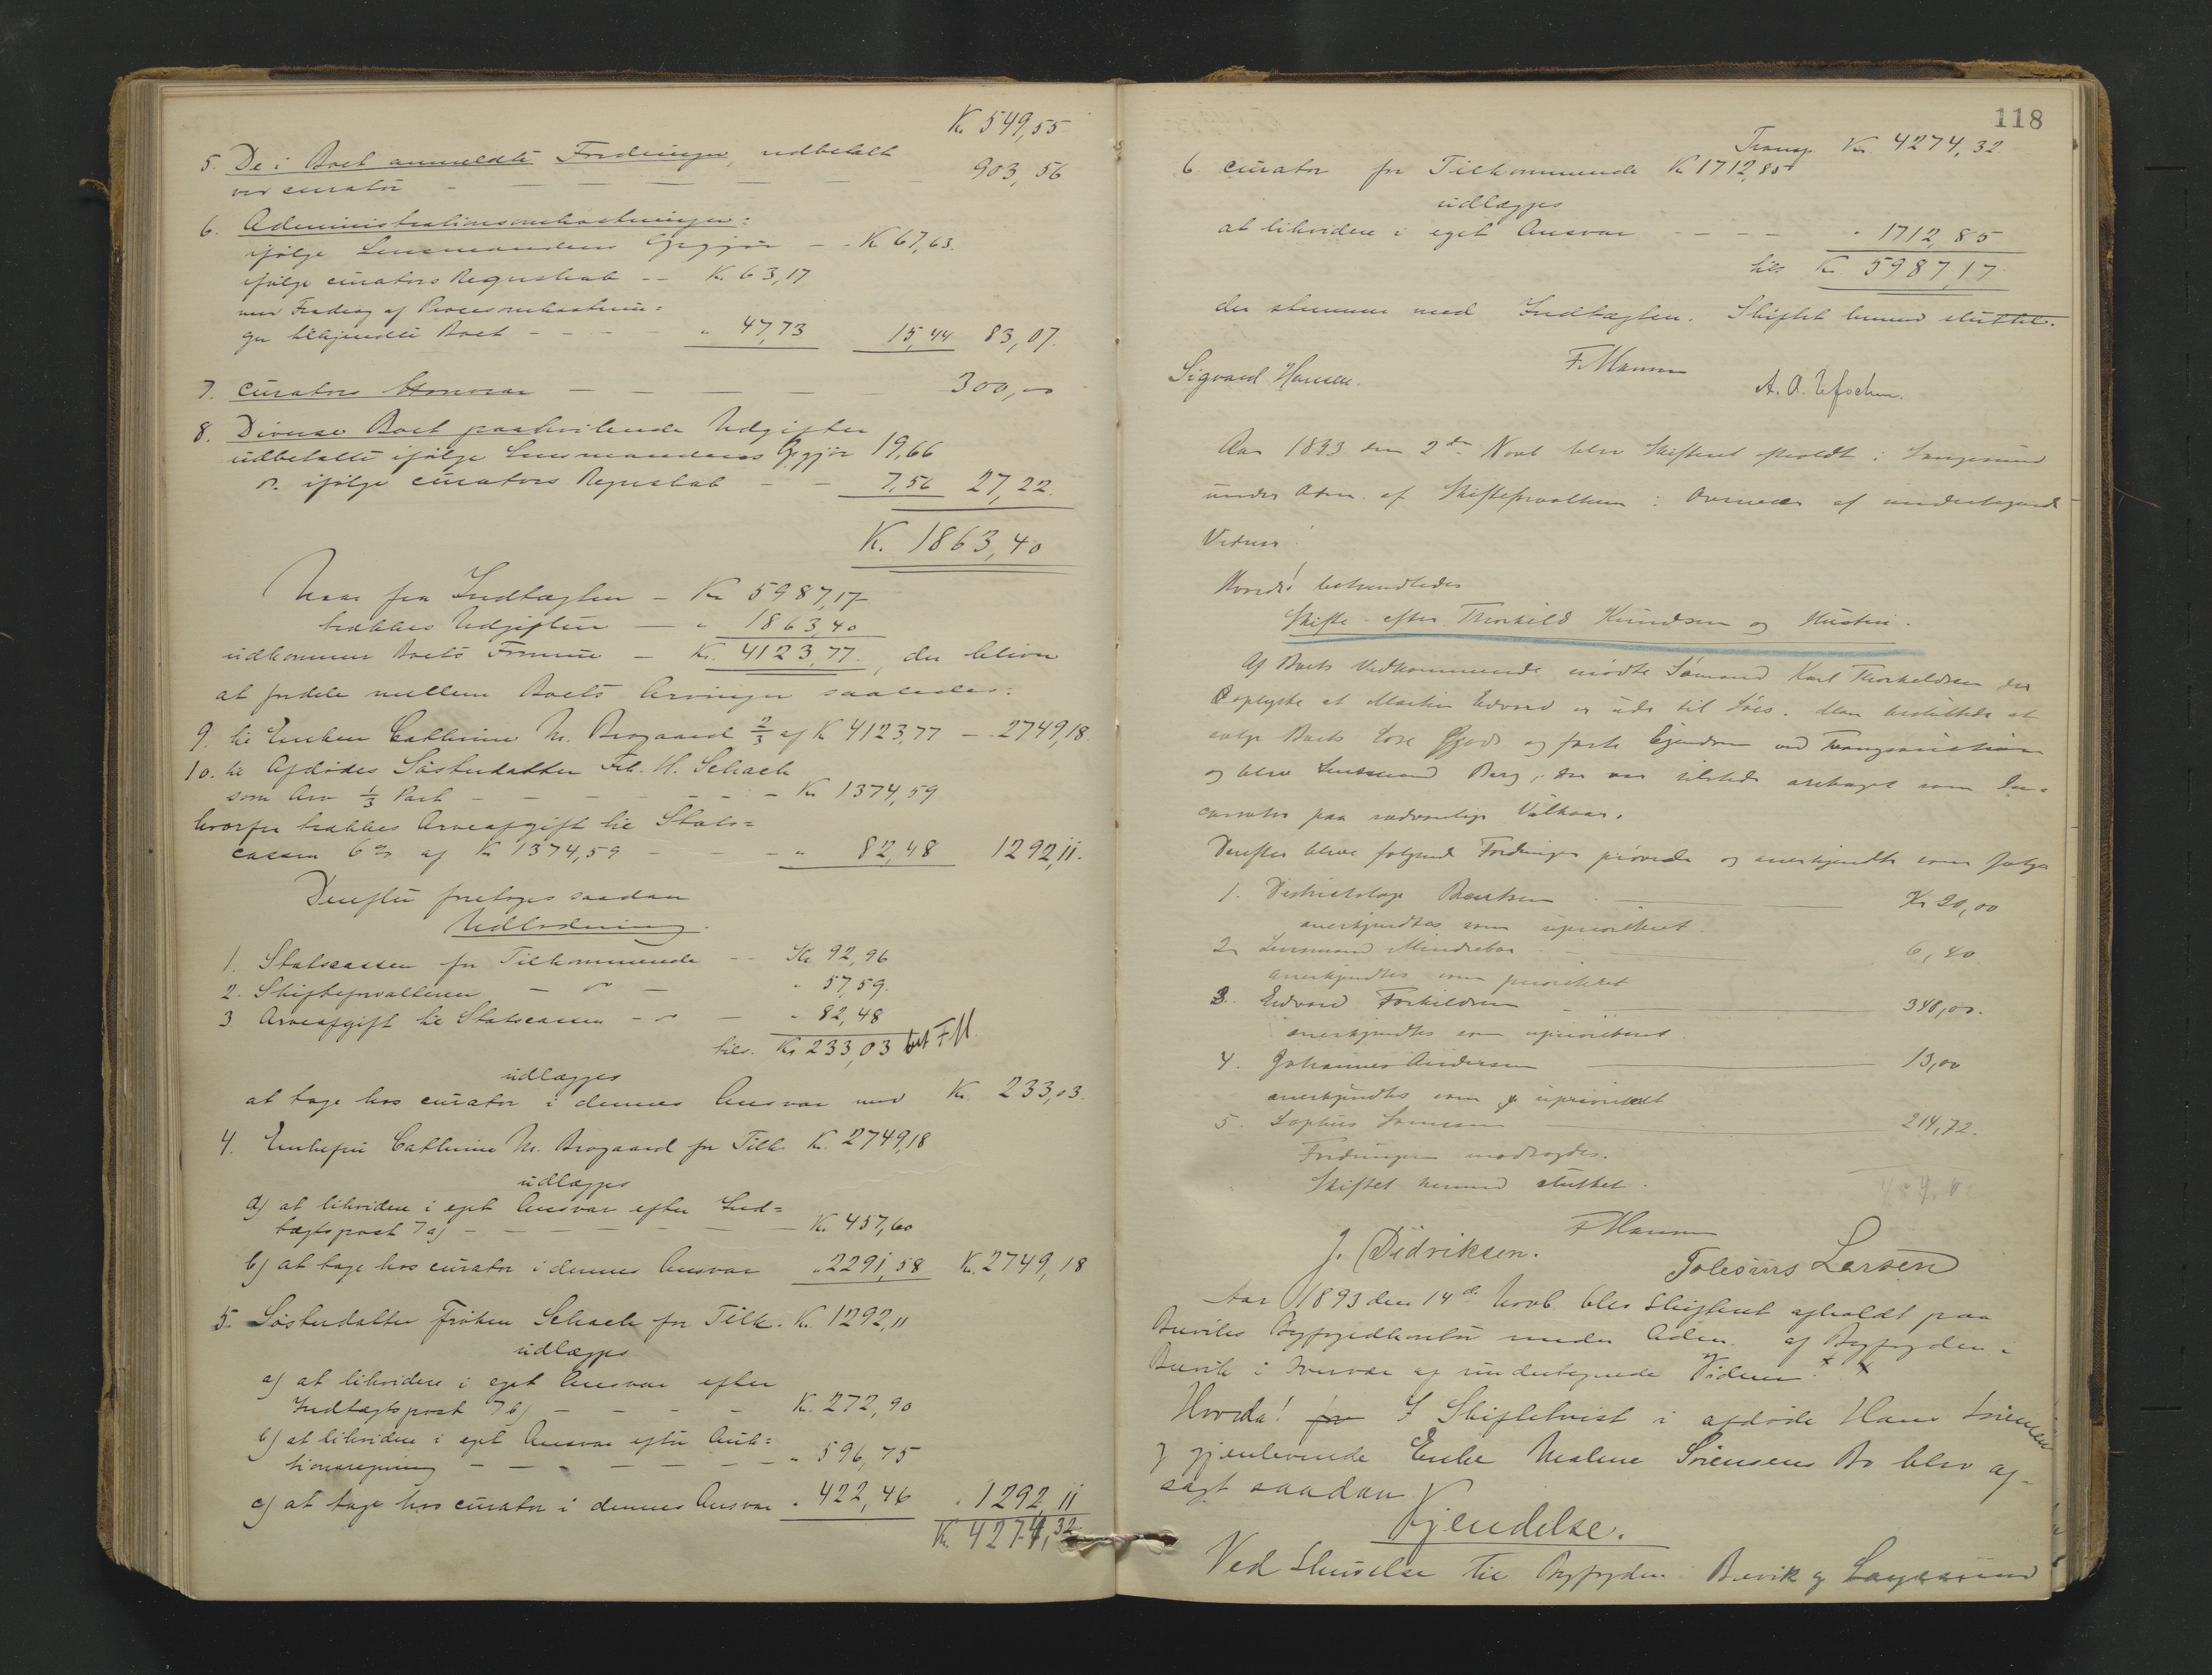 K. 549,55
5. De i Boet anmeldte Fordringer, udbetalt
ved curator - - - - - 903,56
6. Administrationsomkostninger:
ifølge Lensmandens Opgjør - - K 67,63.
ifølge curators Regnskab - - K. 63,17
med Fradrag af Procesomkostnin=
ger tilkjendte Boet - - - - " 47,73 15,44 83,07.
7. curators Honorar - - - - - 300,00
8. Diverse Boet paahvilende Udgifter
udbetalte ifølge Lensmandens Opgjør 19,66
do. ifølge curators Regnskab - - 7,56 27,22.
K. 1863,40
Naar fra Indtægten - Kr 5987,17
trækkes Udgiften - " 1863,40
udkommer Boets Formue - Kr. 4123,77., der bliver
at fordele mellem Boets Arvinger saaledes:
9. til Enken Cathrine M. Brogaard 2/3 af K 4123,77 - 2749,18
10. til Afdødes Søsterdatter Frk. H. Schack
som Arv 1/3 Part - - - - - Kr 1374,59
hvorfra trækkes Arveafgift til Stats=
cassen 6% af Kr 1374,59 - - - " 82,48 1292,11.
Derefter foretoges saadan
Udlodning.
1. Statscassen for Tilkommende - - Kr. 92,96
2. Skifteforvalteren - do - " 57,59.
3 Arveafgift til Statscassen - do - " 82,48
tils. Kr. 233,03 bet FM.
udlægges
at tage hos curator i dennes Ansvar med Kr. 233,03.
4. Enkefru Cathrine M. Brogaard for Tilk. Kr. 2749,18
udlægges
a) at likvidere i eget Ansvar efter Ind=
tægtspost 7 a) - - - - - Kr. 457,60
b) at tage hos curator i dennes Ansvar " 2291,58 K. 2749,18
5. Søsterdatter Frøken Schack for Tilk. K. 1292,11
udlægges
a) at likvidere i eget Ansvar efter
Indtægtspost 7 b) - - - - K. 272,90
b) at likvidere i eget Ansvar efter Auk=
tionsregning - - - - - " 596,75
c) at tage hos curator i dennes Ansvar " 422,46 " 1292,11
Kr. 4274,32
118
Transp. Kr. 4274,32.
6 curator for Tilkommende K 1712,85
udlægges
at likvidere i eget Ansvar - - - - " 1712,85
tils. Kr. 5987,17
der stemmer med Indtægten. Skiftet hermed sluttet.
Sigvard Hansen. F. Mamen
A. O.
Aar 1893 den 2den Novb blev Skifteret afholdt i Langesund
under Adm. af Skifteforvalteren i Overvær af undertegnede
Vidner.
Hvorda! behandledes
Skifte efter Thorkild Knudsen og Hustru.
Af Boets Vedkommende mødte Sømand Karl Thorkeldsen der
oplyste at Martin Edvard er ude til Søes. Man besluttede at
sælge Boets Løse Gjods og faste Eiendom ved Tvangsauktion
og blev Lensmand Berg, der var tilstede antaget som In=
cassator paa sædvanlige Vilkaar.
Derefter bleve følgende Fordringer prøvede og anerkjendte som følger
1. Districtslæge Bentzen - Kr 20,00
anerkjendtes som uprioriteret.
2 Lensmand Mindrebøe - 6,40
anerkjendtes som prioriteret
3. Edvard Torkildsen - 348,00.
anerkjendtes som uprioriteret.
4. Johannes Andersen 13,00
anerkjendtes som uprioriteret
5. Sophus 214,72.
Fordringen modsagdes.
Skiftet hermed sluttet.
F Mamen
J. Didriksen. Larsen
Aar 1893 den 14de Novb. blev Skifteret afholdt paa
Breviks Byfogedkontor under Adm. af Byfogden i
Brevik i Overvær af undertegnede Vidner. x
Hvorda! for I Skiftetvist i afdøde Hans Sørensen
og gjenlevende Enke Malene Sørensens Bo blev af-
sagt saadan
Kjendelse.
Ved Skrivelse til Byfogden i Brevik og Langesund